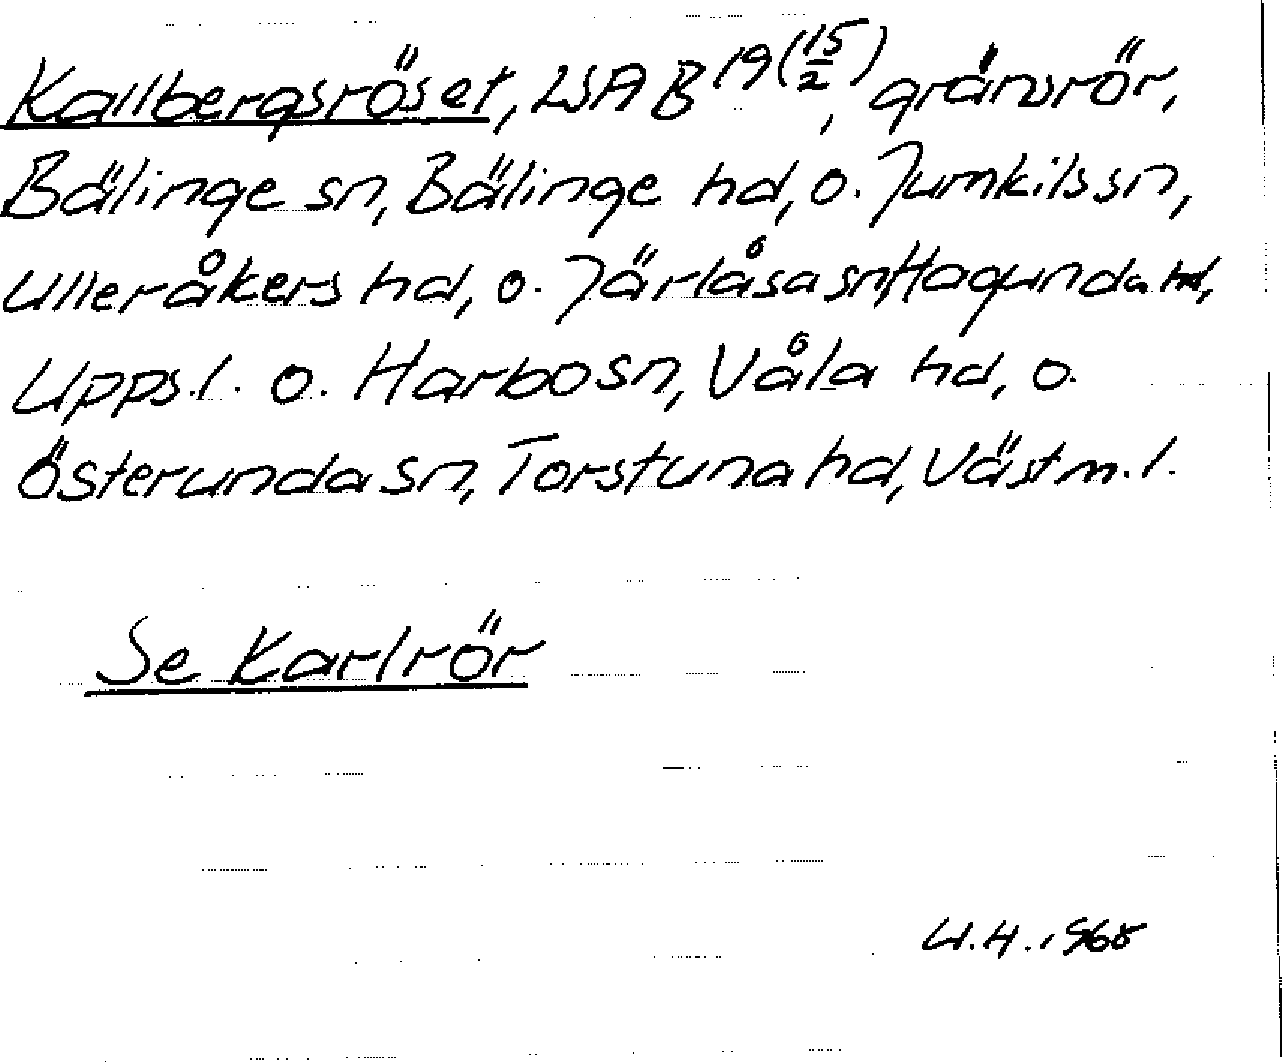 Kallbergsröset, LSA B 19 (15/2), gränsrör,
Bälinge sn, Bälinge hd, o. Jumkils sn,
Ulleråkers hd, o. Järlåsa sn, Hagunda hd,
Upps. l. o. Harbo sn, Våla hd, o.
Österunda sn, Torstuna hd, Västm. l.
Se Karlrör
U.H. 1968